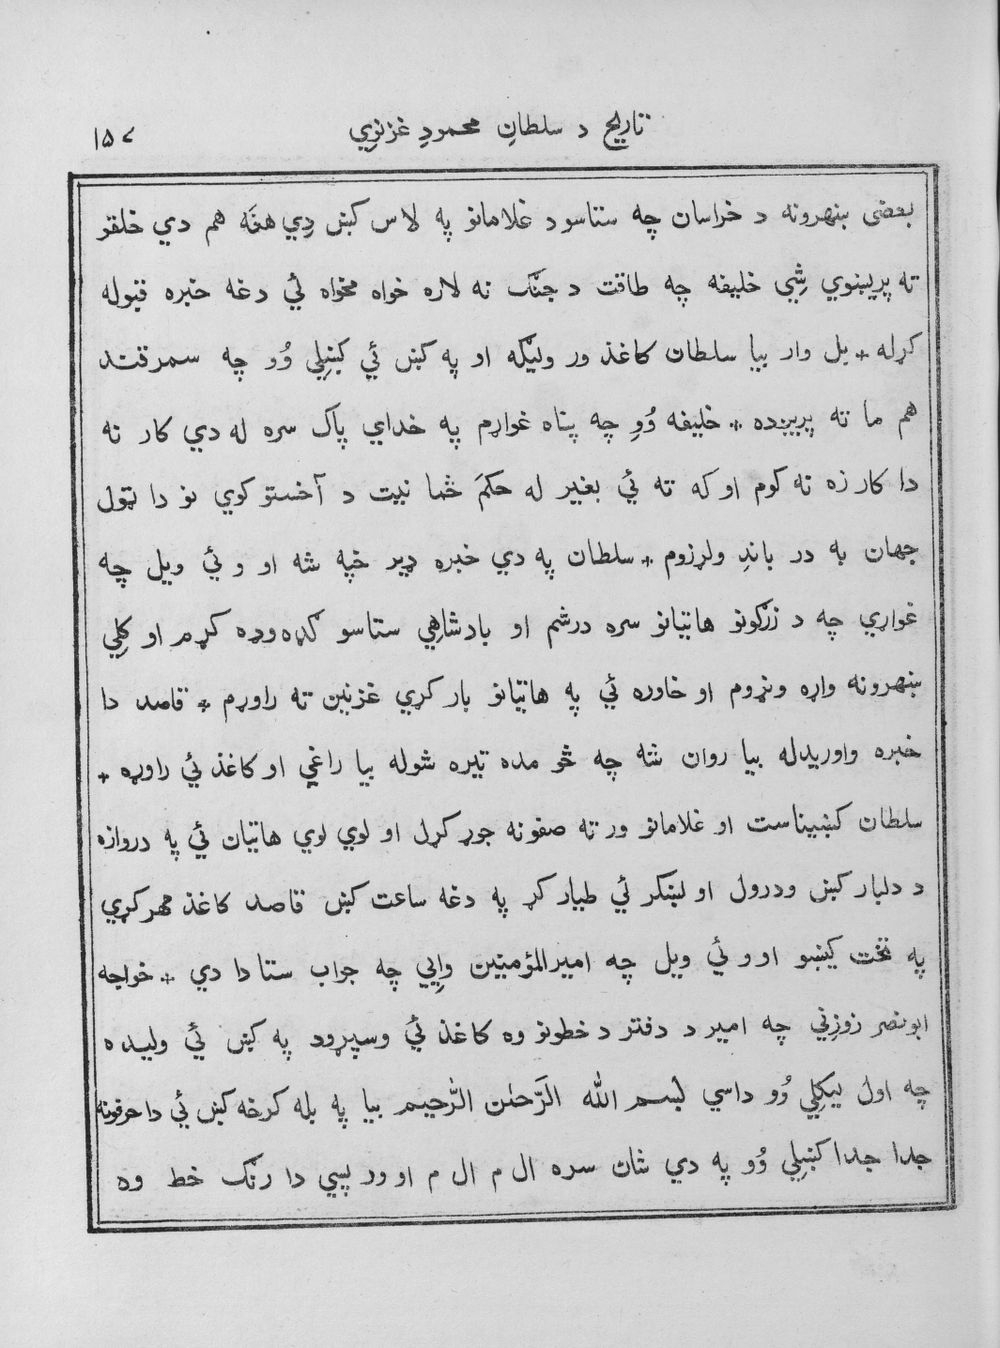 تاریخ د سلطانِ محمودِ غزنوِي ۱۵۷
بعضی ښهرونه د خراسان چه ستاسو د غلامانو په لاس کښ دِي هغَه هم دي خلقو
ته پریښوي شِي خلیفه چه طاقت د جنګ نه لاره خواه مخواه ئي دغه خبره قبوله
کړله * بل وار بیا سلطان کاغذ ور ولیګه او په کښ ئي کښلِي وُو چه سمرقند
هم ما ته پریږده * خلیفه وُوِ چه پناه غواړم په خداي پاک سره له دي کار نه
دا کار زه نه کوم او که ته ئي بغیر له حکمَ څما نیت د آخستو کوي نو دا ټول
جهان به در باندِ ولړزوم * سلطان په دي خبره ډیر خپه شه او و ئي ویل چه
غواړي چه د زرګونو هاتیانو سره درشم او بادشاهِي ستاسو ګډه وډه کړم او کلِي
ښهرونه واړه ونړوم او خاوره ئي په هاتیانو بار کړي غزنین ته راوړم * قاصد دا
خبره واوریدله بیا روان شه چه څو مده تیره شوله بیا راغي او کاغذ ئي راوړه *
سلطان کښیناست او غلامانو ور ته صفونه جوړ کړل او لوي لوي هاتیان ئي په دروازه
د دلبار کښ ودرول او لښکر ئي طیار کړ په دغه ساعت کښ قاصد کاغذ مهر کړي
په تخت کیښو او و ئي ویل چه امیرالمؤمنین وايِي چه جواب ستا دا دي * خواجه
ابونصر زوزِني چه امیر د دفتر د خطونو وه کاغذ ئي وسپړود په کښ ئي ولیده
چه اول لیکلِي وُو داسي بسم الله الرَّحمٰن الرَّحیم بیا په بله کرخه کښ ئي دا حرفونه
جدا جدا کښلِي وُو په دي شان سره ال م ال م او ور پسي دا رنګ خط وه